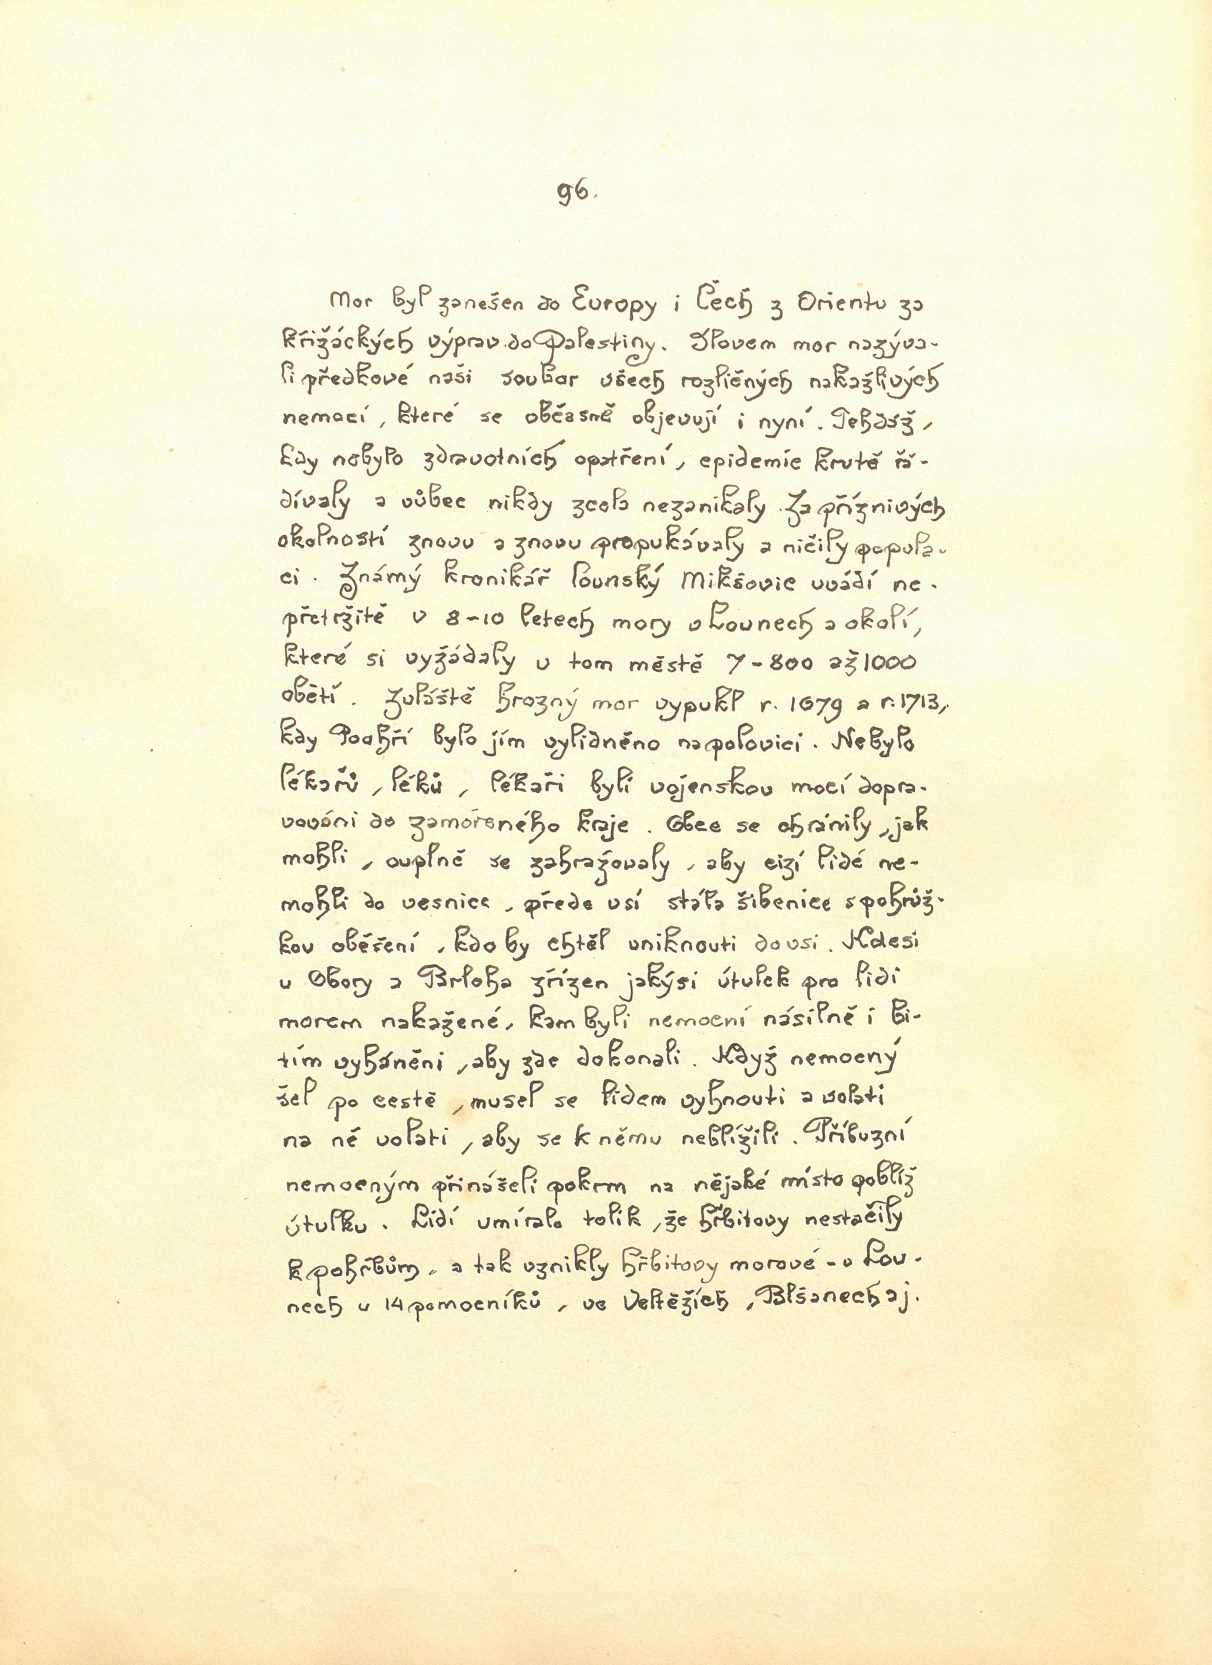 96.
Mor byl zanešen do Europy i Čech z Orientu za
křižáckých výprav do Palestiny. Slovem mor nazýva-
li předkové naši soubor všech rozličných nakažlivých
nemocí, které se občasně objevují i nyní. Tehdáž,
kdy nebylo zdravotních opatření, epidemie krutě řá-
dívaly a vůbec nikdy zcela nezanikaly. Za příznivých
okolností znovu a znovu propukávaly a ničily popula-
ci. Známý kronikář lounský Mikšovic uvádí ne-
přetržitě v 8-10 letech mory v Lounech a okolí,
které si vyžádaly v tom městě 7-800 až 1000
obětí. Zvláště hrozný mor vypukl r. 1679 a r. 1713,
kdy Poohří bylo jím vylidněno na polovici. Nebylo
lékařů, léků, lékaři byli vojenskou mocí dopra-
vováni do zamořeného kraje. Obce se chránily, jak
mohli, ouplně se zahražovaly, aby cizí lidé ne-
mohli do vesnice, přede vsí stála šibenice s pohrůž-
kou oběšení, kdo by chtěl uniknouti do vsi. Kdesi
u Obory a Brloha zřízen jakýsi útulek pro lidi
morem nakažené, kam byli nemocní násilně i bi-
tím vyháněni, aby zde dokonali. Když nemocný
šel po cestě, musel se lidem vyhnouti a volati
na ně volati, aby se k němu neblížili. Příbuzní
nemocným přinášeli pokrm na nějaké místo poblíž
útulku. Lidí umíralo tolik, že hřbitovy nestačily
k pohřbům, a tak vznikly hřbitovy morové - v Lou-
nech u 14 pomocníků, ve Veltěžích, Blšanech aj.